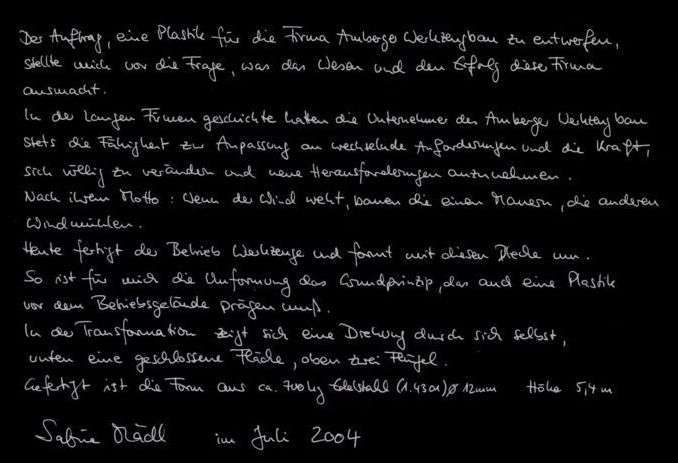 Der Auftrag, eine Plastik für die Firma Amberger Werkzeugbau zu entwerfen,
stellte mich vor die Frage, was das Wesen und den Erfolg dieser Firma
ausmacht.
In der langen Firmengeschichte hatten die Unternehmer des Amberger Werkzeugbau
stets die Fähigkeit zur Anpassung an wechselnde Anforderungen und die Kraft,
sich völlig zu verändern und neue Herausforderungen anzunehmen.
Nach ihrem Motto: Wenn der Wind weht, bauen die einen Mauern, die anderen
Windmühlen.
Heute fertigt der Betrieb Werkzeuge und formt mit diesen Bleche um.
So ist für mich die Umformung das Grundprinzip, das auch eine Plastik
vor dem Betriebsgelände prägen muß.
In der Transformation zeigt sich eine Drehung durch sich selbst,
unten eine geschlossene Fläche, oben zwei Flügel.
Gefertigt ist die Form aus ca. 700 kg Edelstahl (1.4301) Ø 12mm Höhe 5,4 m
Sabine Mädl im Juli 2004